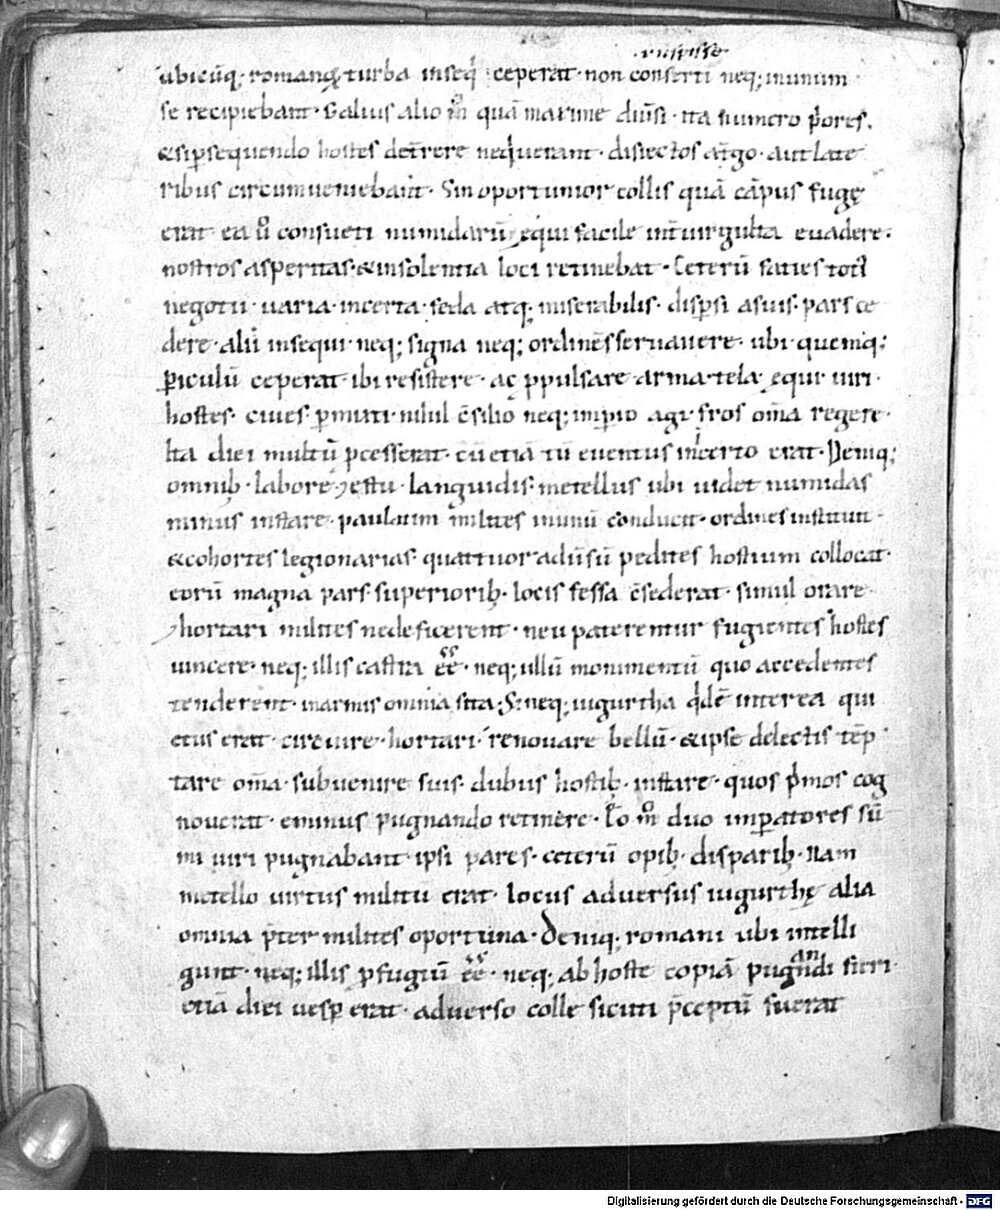 .i. ruisisse
ubicūq; romanoꝝ turba inseq̇ ceperat · non conferti neq; inunum
se recipiebant · S; alius alio ut̄ quā maxime diūsi · ita numero p̄ores.
& si ꝑsequendo hostes det̄rere nequerant · disiectos at̄go · aut late
ribus circumueniebant̄ · Sin oportunior collis quā cāpus fugę
erat ea ů consueti numidarū ęqui facile int̄ uirgulta euadere ·
nostros asperitas · & insolentia loci retinebat · Ceterū faties toti᷒
negotii uaria · incerta · feda atq; miserabilis · disꝑsi asuis · pars ce
dere · alii insequi · neq; signa neq; ordinēs seruauere · ubi quemq;
ꝑiculū ceperat · ibi resistere · ac ꝓpulsare · arma · tela ęqui uiri ·
hostes · ciues ꝑmixti · nihil c̄silio neq; imꝑio agi · fros om̄a regere ·
Ita diei multū ꝓcesserat · cū etiā tū euentus incerto erat · Deniq;
omnibꝫ · labore · ⁊ estu · languidis · metellus ubi uidet numidas
minus instare · paulatim milites inunū conducit · ordines instituit ·
& cohortes legionarias · quattuor aduersū pedites hostium collocat ·
eorū magna pars superioribꝫ · locis fessa c̄sederat · simul orare ·
⁊ hortari milites ne deficerent · neu paterentur fugientes hostes
uincere · neq; illis castra ee᷒ · neq; ullū monimentū quo accedentes
tenderent · inarmis omnia sita · S; neq; iugurtha q̇dē interea qui
etus erat · circuire · hortari · renouare bellū · & ipse delectis tēp
tare om̄a · subuenire suis · dubiis hostibꝫ · instare · quos p̄mos cog
nouerat · eminus pugnando retinere · Eo m̊ duo imꝑatores sū
mi uiri pugnabant · ipsi pares · ceterū opibꝫ · disparibꝫ · Nam
metello uirtus militū erat · locus aduersus iugurthę alia
omnia p̄ter milites oportuna · Deniq; romani ubi intelli
gunt · neq; illis ꝑfugiū ee᷒ · neq; ab hoste copiā pugnandi fieri ·
etiā diei uesꝑ erat · aduerso colle sicuti p̄ceptū fuerat
Digitalisierung gefördert durch die Deutsche Forschungsgemeinschaft - DFG